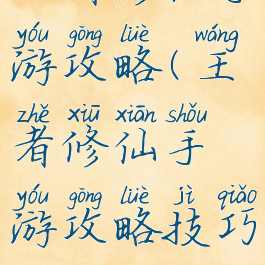 yóu gōng lüè wáng
游攻略(王
zhě xiū xiān shǒu
者修仙手
yóu gōng lüè jì qiǎo
游攻略技巧